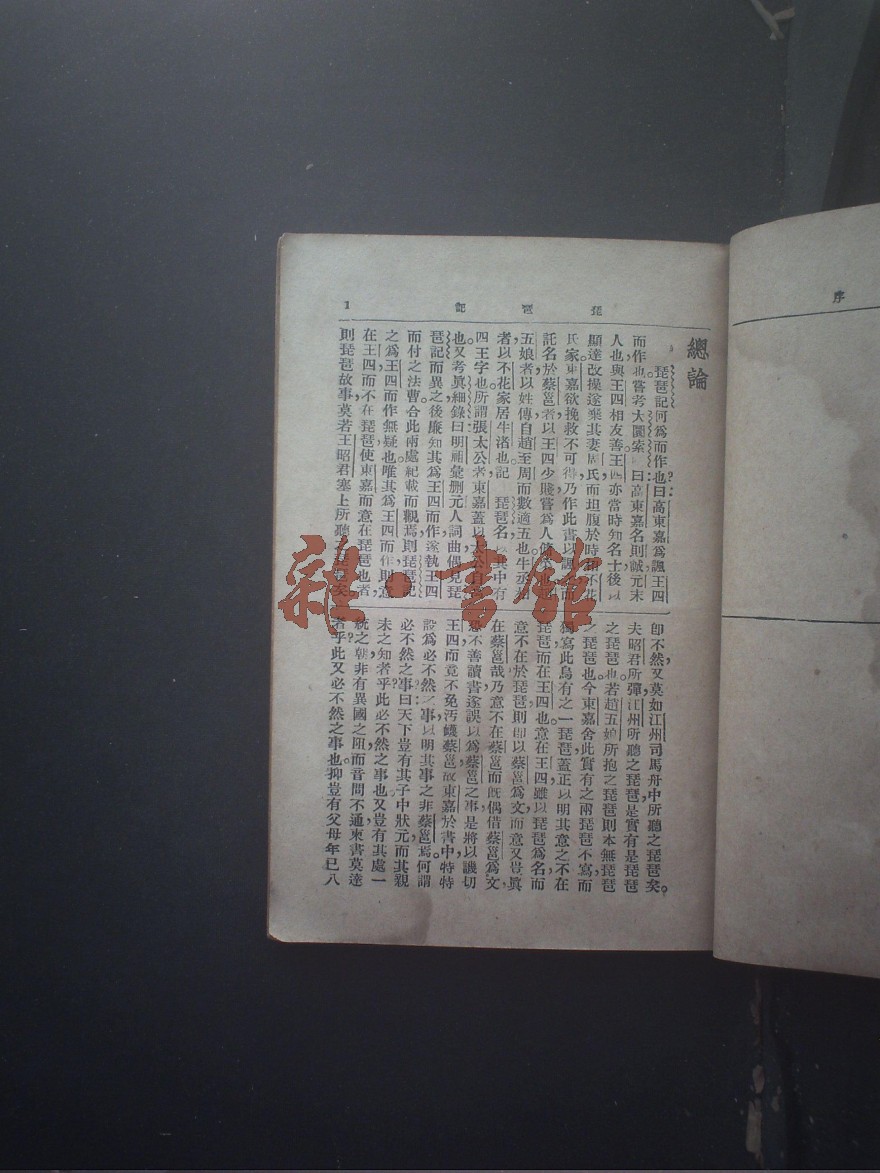 序
琵琶記
1
總論
琵琶記何為而作也?曰:高東嘉為諷王四
而作也。嘗考大圜索曰:高東嘉名則誠,元末
人也,與王四相友善。王四亦當時知名士,後以
顯達改操,遂棄其妻周氏,而坦腹於時相不花
氏家,東嘉欲挽救不可得,乃作此書以諷之。而
託名於蔡邕者,以王四少賤,嘗為人傭
五娘者,以姓傳自趙至周而數適五也。牛丞相
者,以不花家居牛渚也。記琵琶名,以其中有
四王字也。所謂張太公者,東嘉蓋以太公自
也。又考真細錄曰:明廟彙刪元人詞曲,偶見琵
琶記而異之,後廉知其為王四而作,遂執王四
而付之法曹。合此兩處紀載而觀焉,則琵琶記
之為王四而作無疑也。唯其為王四而作,則意
在王四而不在琵琶,使東嘉而意在琵琶也者,
則琵琶故事,莫若王昭君塞上所聽之琵琶矣。
即不然,又莫如江州司馬舟中所聽之琵琶矣。
夫昭君所彈,江州所聽之琵琶,是實有是琵琶
之琵琶也。若趙五娘所抱之琵琶,則本無琵琶
之琵琶也。今東嘉舍此實有之兩琵琶不寫,而
獨寫此烏有之一琵琶,蓋正以明其意之不在
琵琶,而在王四也。意在王四,雖以琵琶為名,而
意不在於琵琶,則即以蔡邕為文,而意又豈眞
在蔡邕哉?乃意不在蔡邕,而旣偶借蔡邕為文,
恐不善讀書,遂誤以為蔡邕之事,是將以譏切
王四,而竟不免汚衊蔡邕。故東嘉於書中特特
設為必不然之事,以明其事之非蔡邕焉。何謂
必不然之事?曰:天下豈有其子中狀元,而其親
未之知者乎?此必不然之事也。又豈有其處一
統之朝,非有異國之阻,而音問不通,柬書莫達
者乎?此又必不然之事也。抑豈有父母年已八
雜·書館